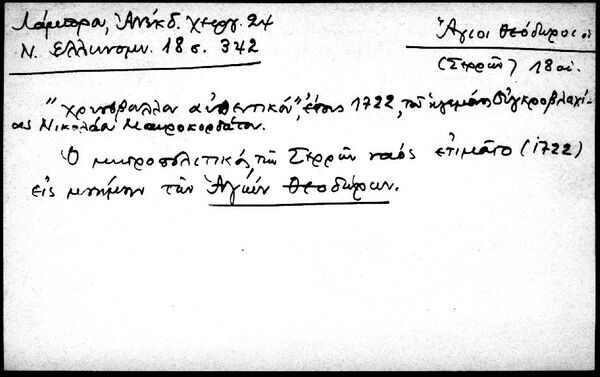 Λάμπρου, Ἀνέκδ. χειργ. 24
Ν. Ελληνομν. 18 σ. 342
Ἅγιοι Θεόδωροι οἱ
(Σερρῶν) 18 αἰ.
"Χρυσόβαλλον αὐθεντικόν", ἔτους 1722, τοῦ ἡγεμόνος Οὐγκροβλαχί-
ας Νικολάου Μαυροκορδάτου.
Ὁ μητροπολιτικός τῶν Σερρῶν ναός ἐτιμᾶτο (1722)
εἰς μνήμην τῶν Ἁγίων Θεοδώρων.